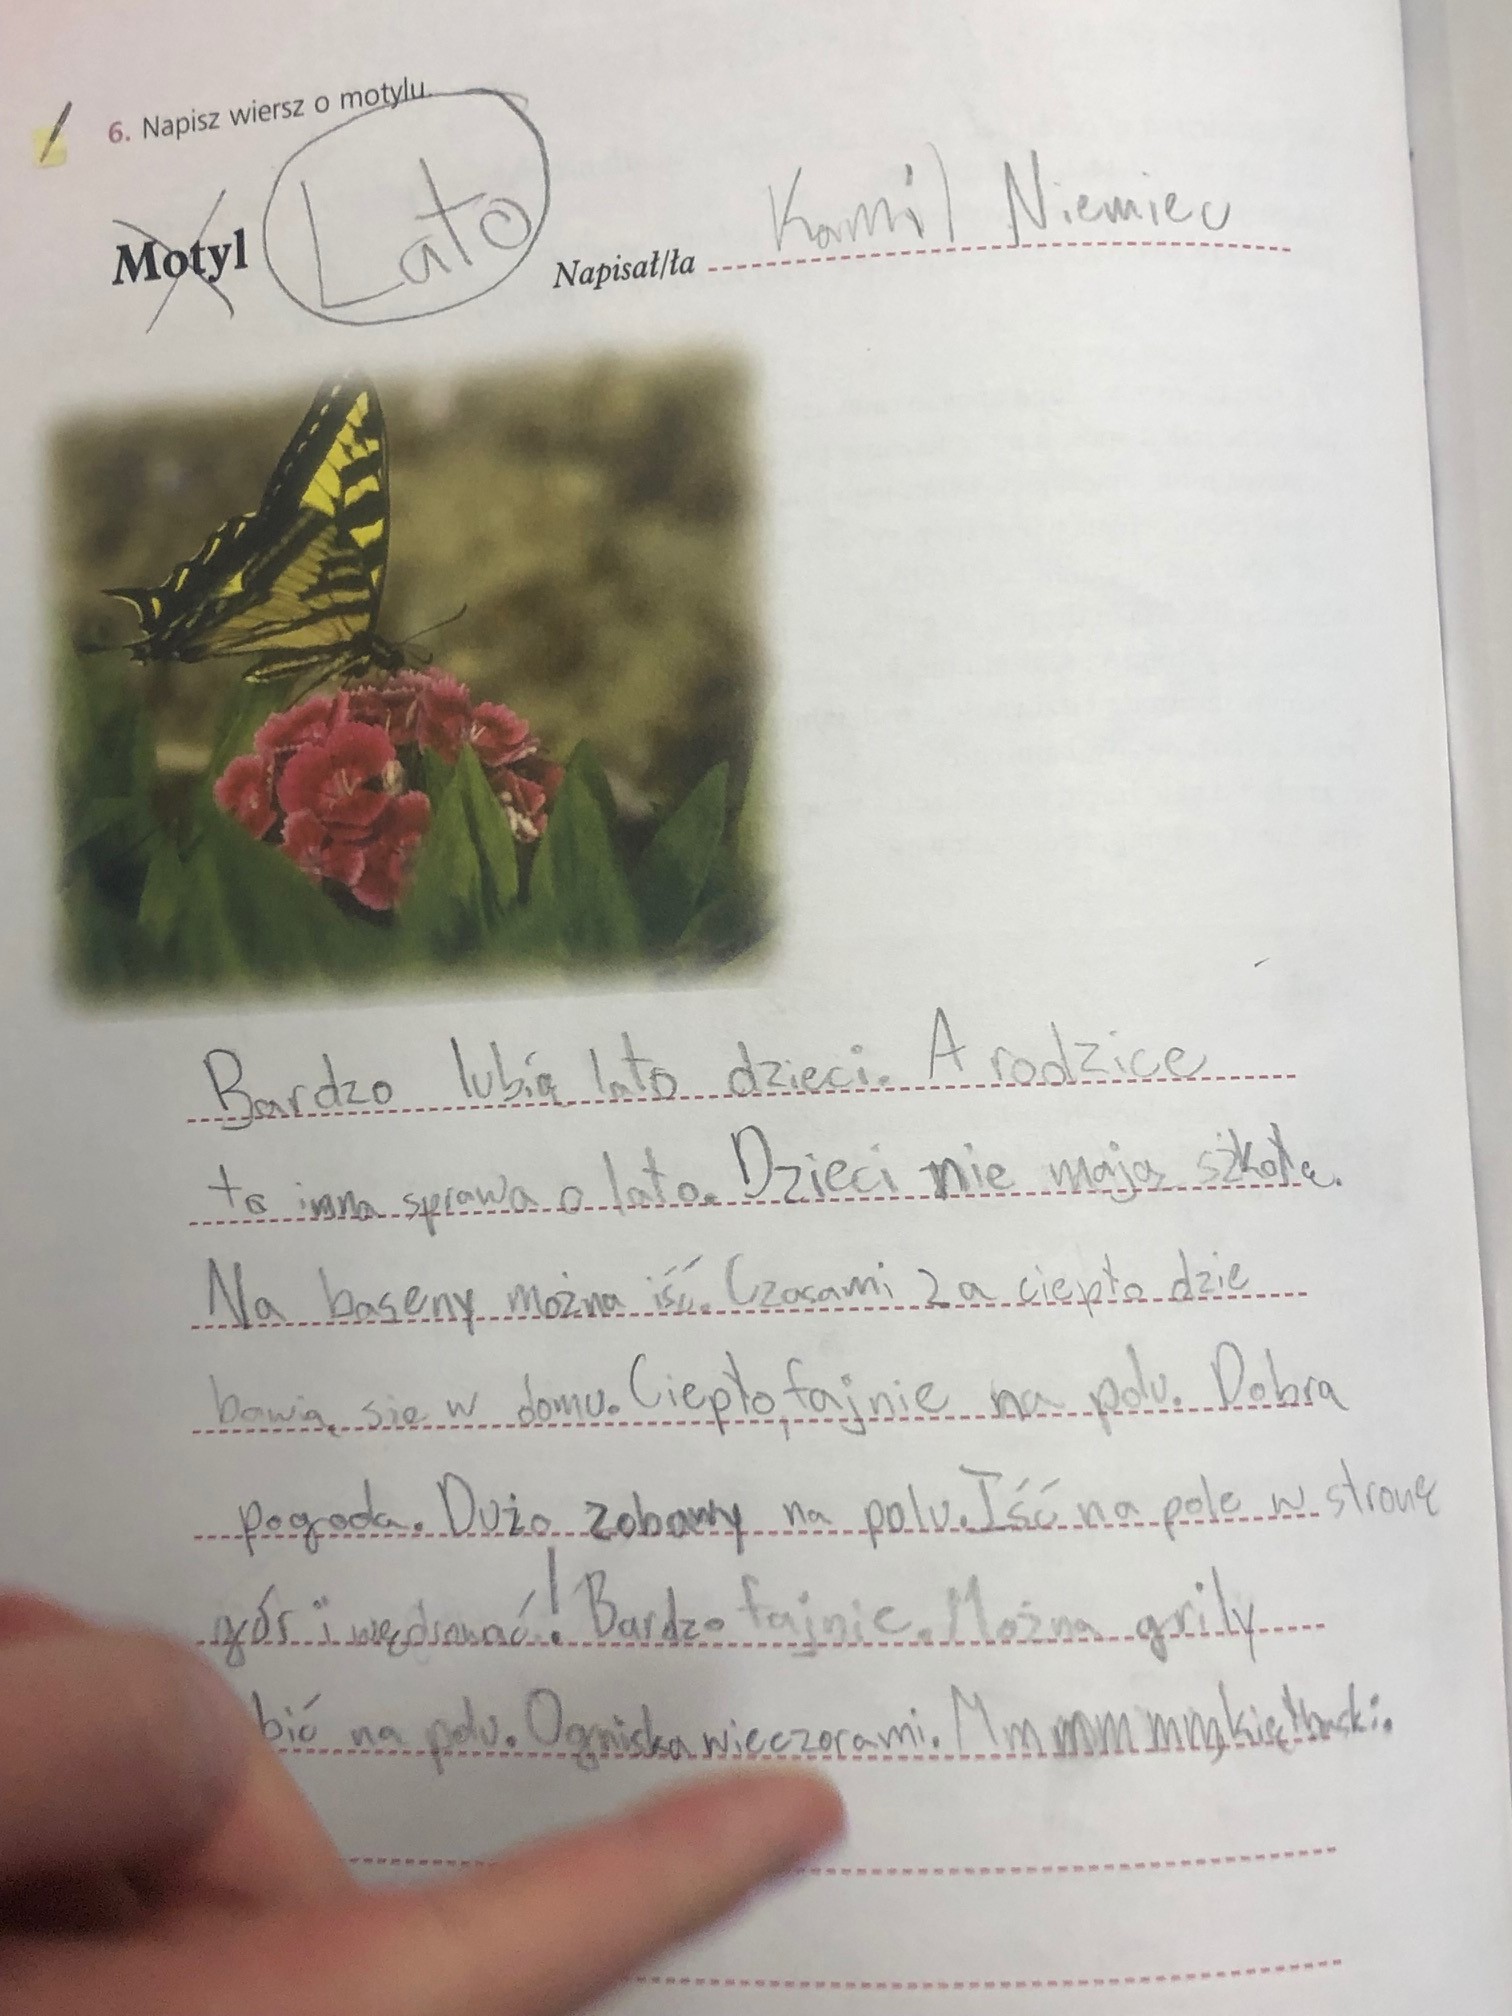 6. Napisz wiersz o motylu.
Motyl Lato Napisał/ła Kamil Niemiec
Bardzo lubią lato dzieci. A rodzice
to inna sprawa o lato. Dzieci nie mają szkołę.
Na baseny można iść. Czasami za ciepło dzie
bawią się w domu. Ciepło, fajnie na polu. Dobra
pogoda. Dużo zobawy na polu. Iść na pole w stronę
gór i wędrować! Bardzo fajnie. Można grily
bić na polu. Ogniska wieczorami. Mmmmmmm kiełbaski.